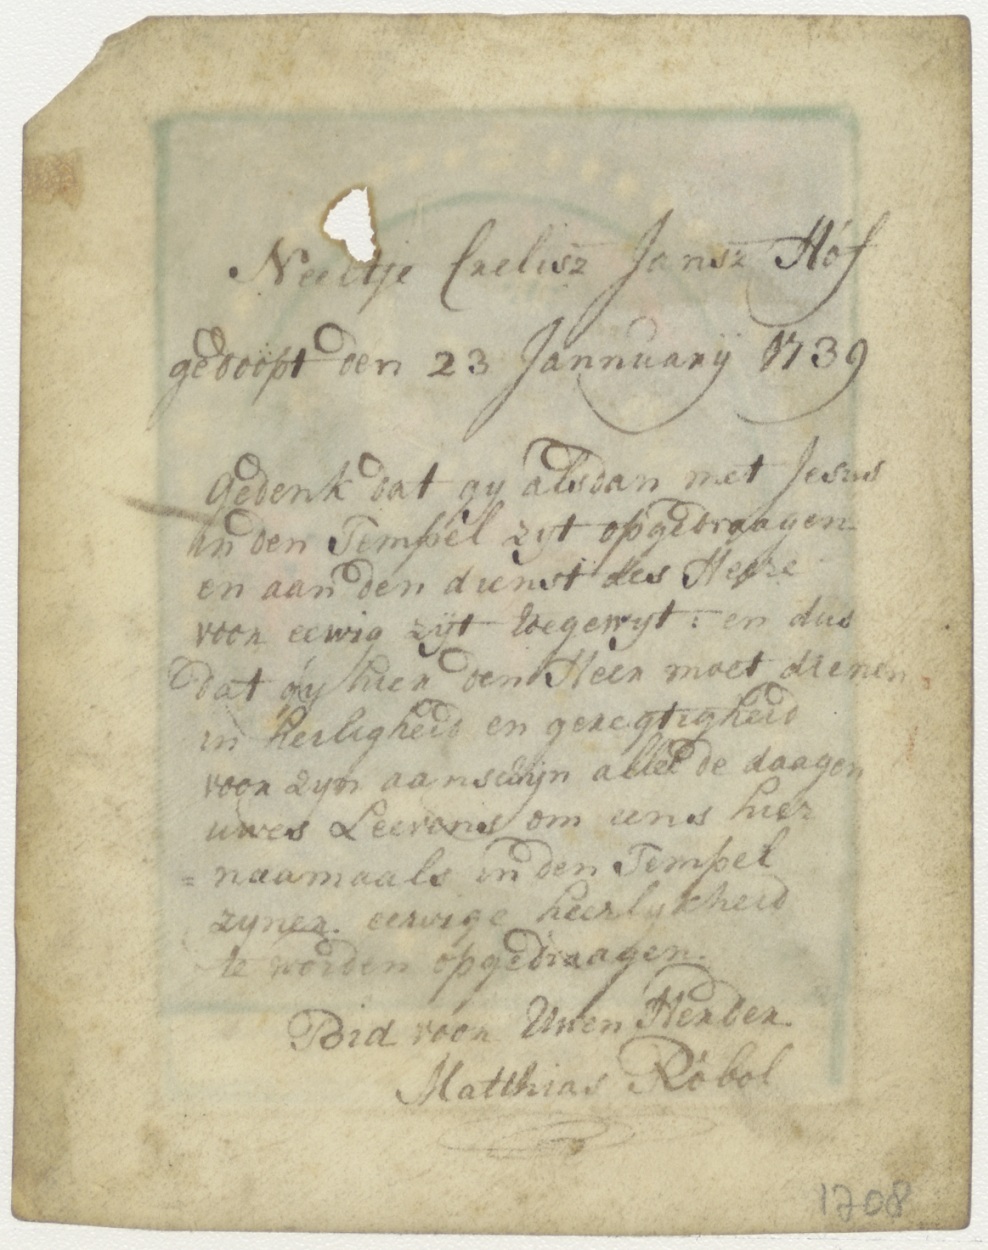 Neeltje Crelisz Jansz Hóf
gedoopt den 23 Jannuary 1739
Gedenk dat gy alsdan met Jesus
in den Tempel zyt opgedraagen
en aan den dienst des Heere
voor eewig zÿt toegewyt: en dus
dat gy hier den Heer moet dienen
in heiligheid en geregtigheid
voor zyn aanschyn alle de daagen
uwes Leevens om eens hier
= naamaals in den Tempel
zyner eewige heerlykheid
te worden opgedraagen.
Bid voor Uwen Herder
Matthias Róbol
1708